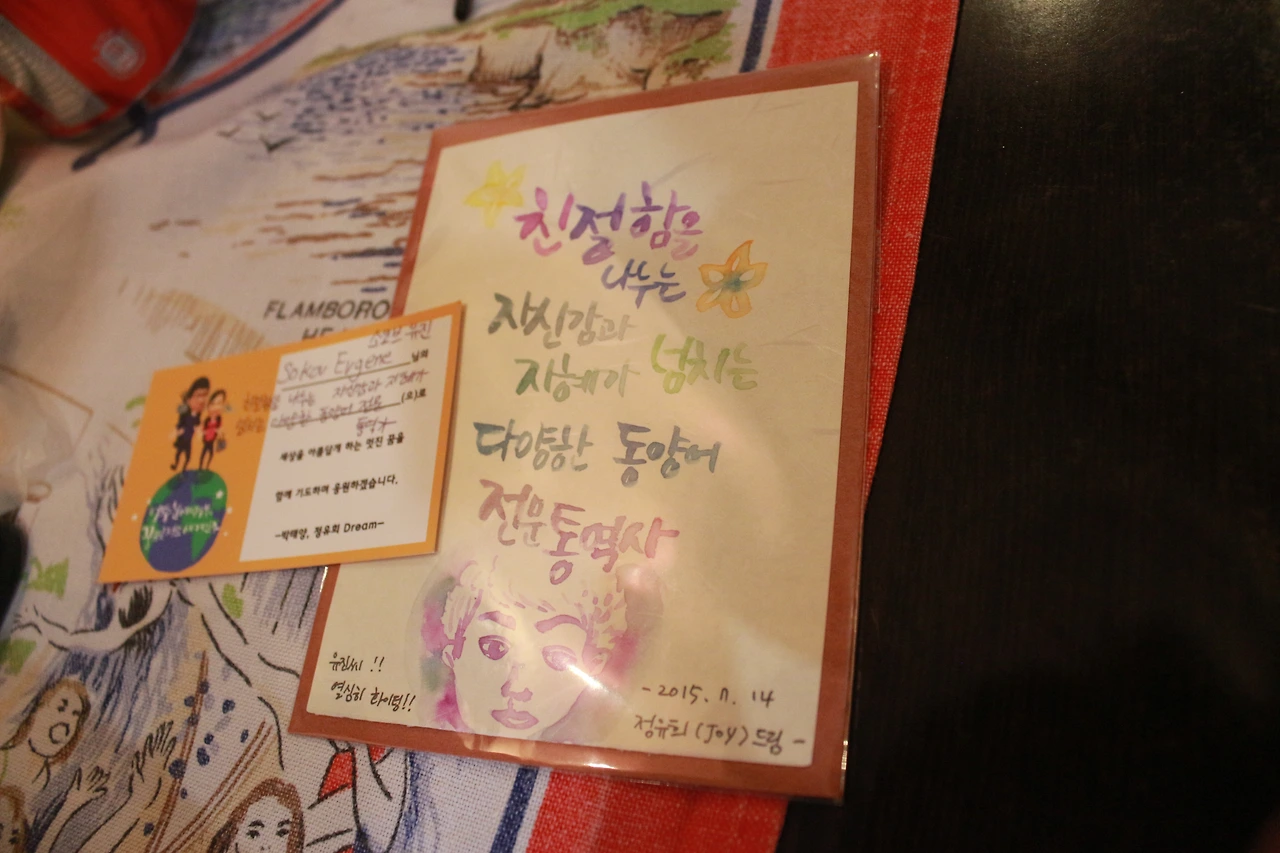 친절함을
나누는
자신감과
지혜가 넘치는
다양한 동양어
전문통역사
유진씨 !!
열심히 화이팅!!
- 2015. 11. 14
정유희 (JOY) 드림 -
FLAMBORO
소코브 유진
Sokov Evgene 님의
친절함을 나누는 자신감과 지혜가
다양한 동양어 전문 (으)로
통역가
세상을 아름답게 하는 멋진 꿈을
함께 기도하며 응원하겠습니다.
-박태양, 정유희 Dream-